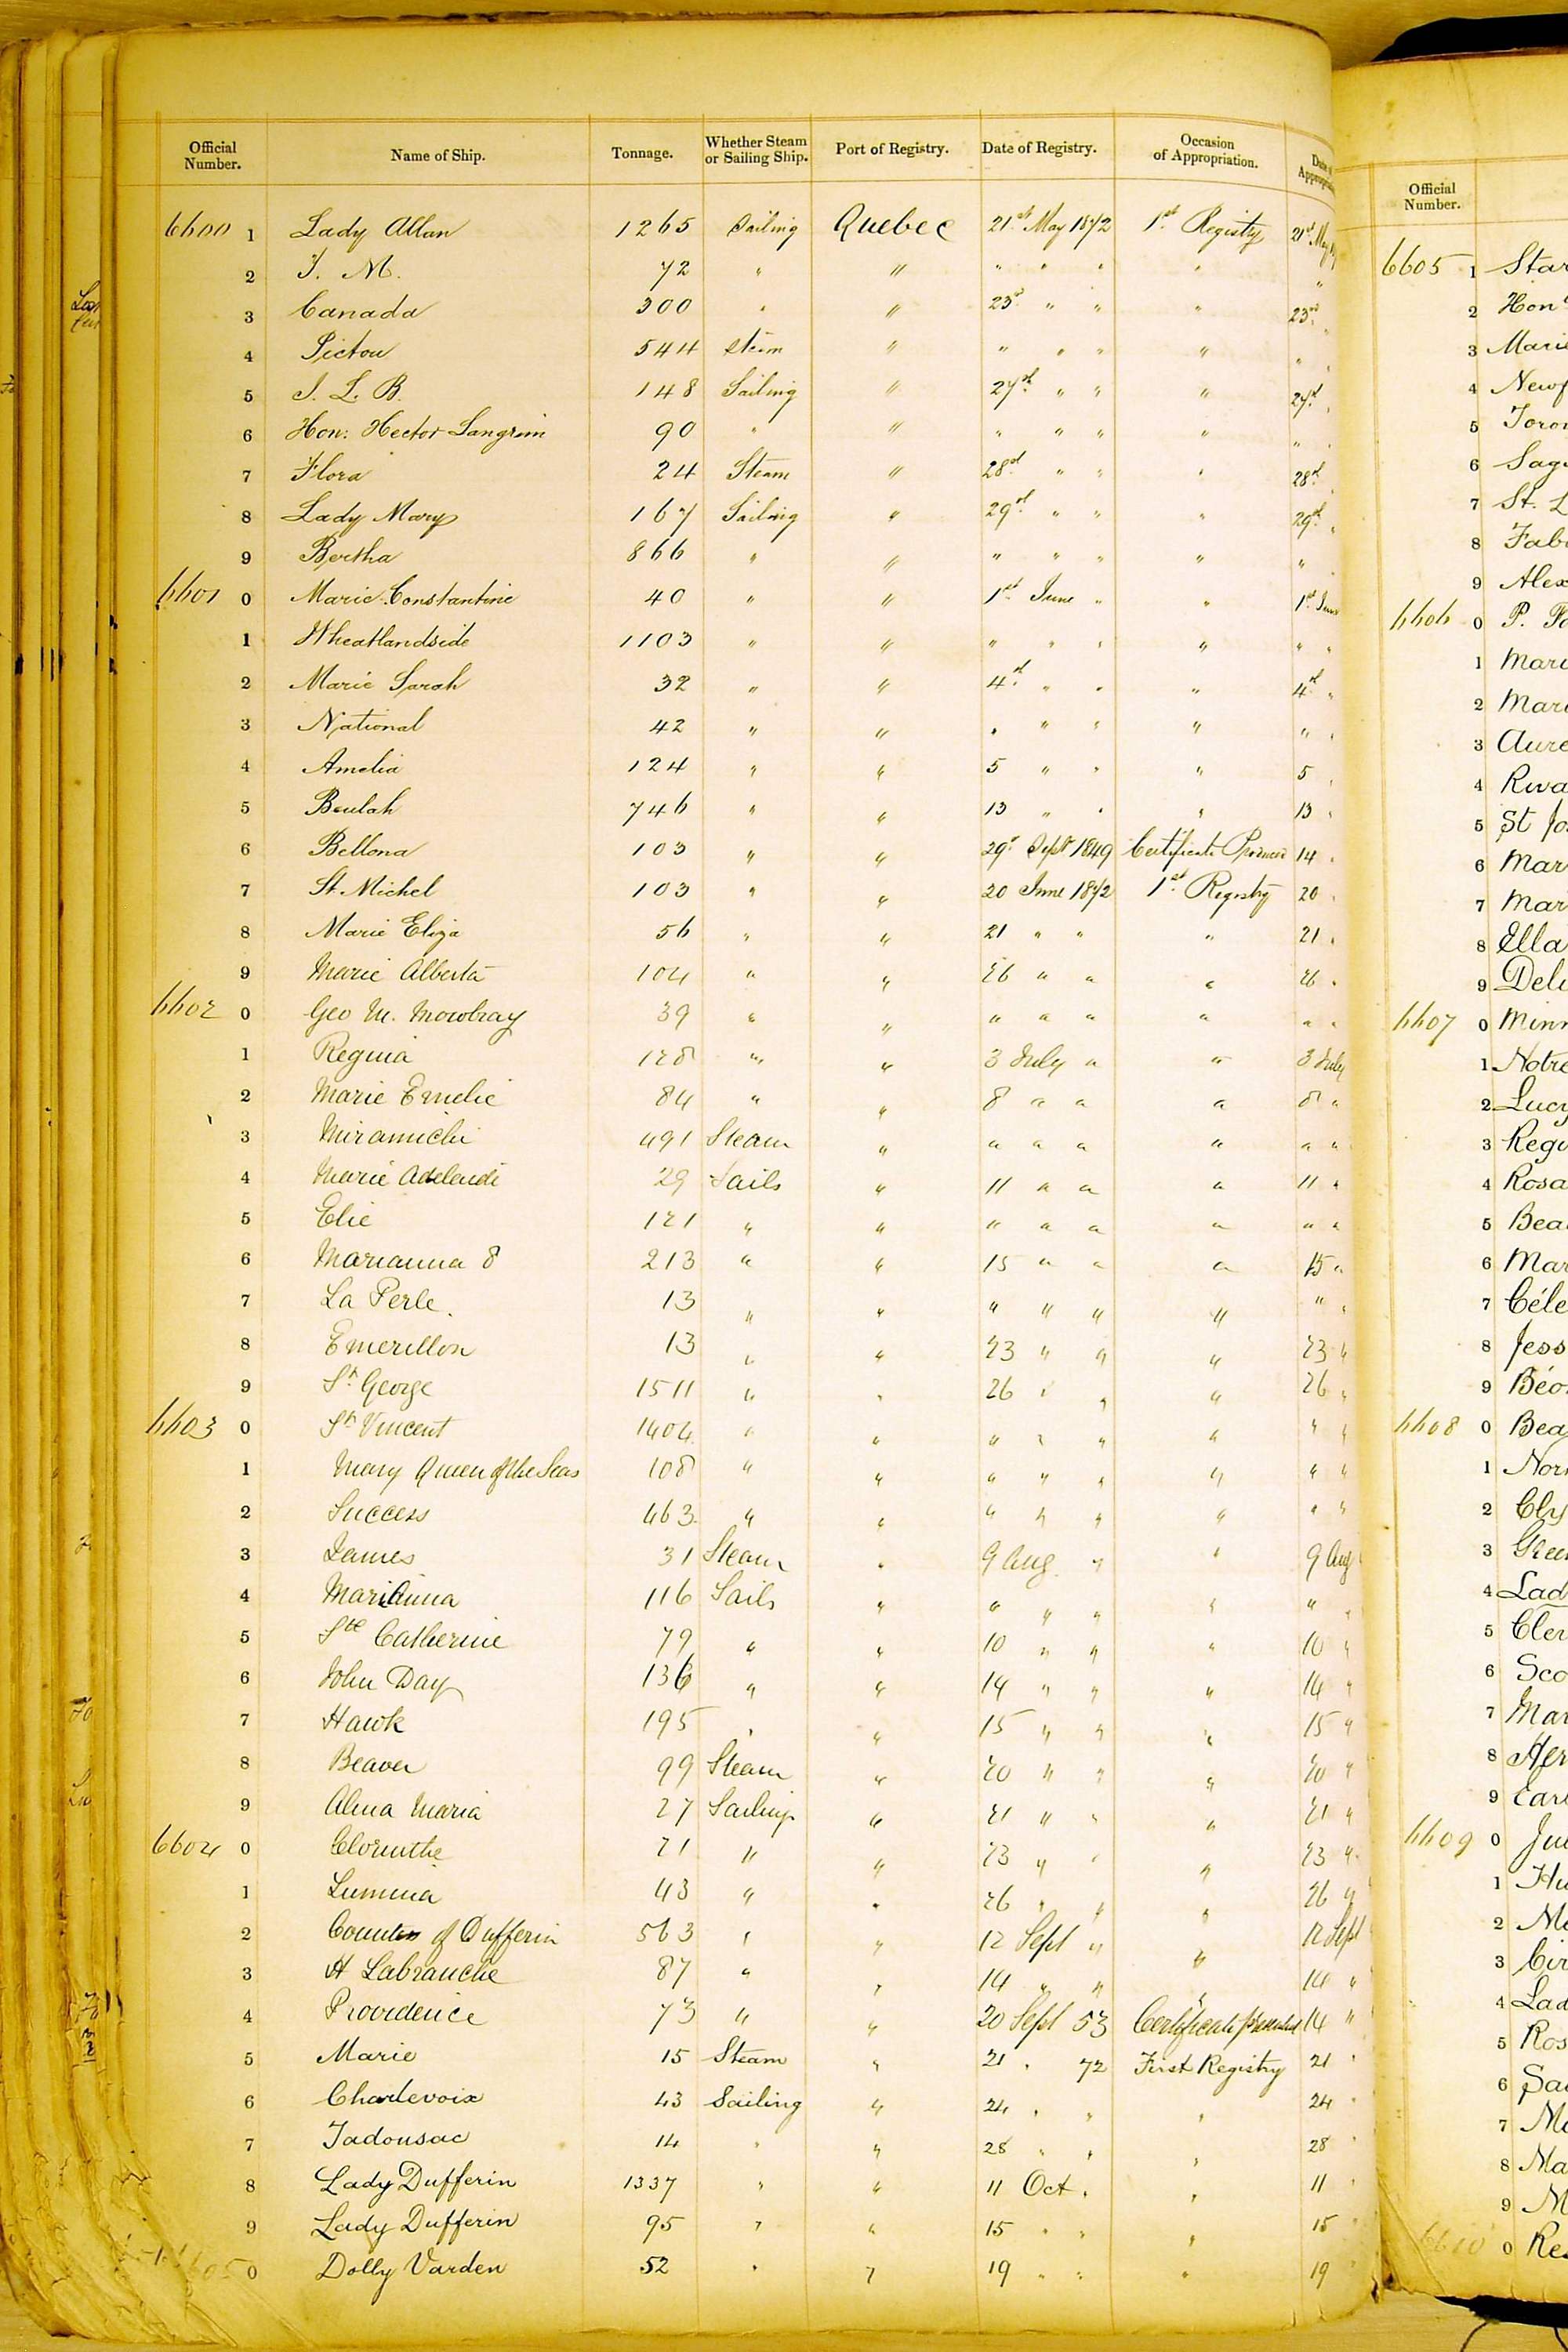 Official Number. Name of Ship. Tonnage. Whether Steam or Sailing Ship. Port of Registry. Date of Registry. Occasion of Appropriation.
6600 1 Lady Allan 1265 Sailing Quebec 21st May 1872 1st Registry 21st May
2 J. M. 72 " " " " " " "
3 Canada 300 " " 23d " " " 23rd "
4 Pictou 544 Steam " " " " " " "
5 J. L. B. 148 Sailing " 27d " " " 27d "
6 Hon: Hector Langevin 90 " " " " " " " "
7 Flora 24 Steam " 28d " " " 28d
8 Lady Mary 167 Sailing " 29d " " " 29d "
9 Bertha 866 " " " " " " "
6601 0 Marie Constantine 40 " " 1st June " " 1st June
1 Wheatlandside 1103 " " " " " " " "
2 Marie Sarah 32 " " 4d " " " 4d "
3 National 42 " " " " " " " "
4 Amelia 124 " " 5 " " " 5 "
5 Beulah 746 " " 13 " " " 13 "
6 Bellona 103 " " 29d Sept 1849 Certificate Produced 14 "
7 St. Michel 103 " " 20 June 1872 1st Registry 20 "
8 Marie Eliza 56 " " 21 " " " 21 "
9 Marie Alberta 104 " " 26 " " " 26 "
6602 0 Geo M. Mowbray 39 " " " " " " " "
1 Regina 128 " " 3 July " " 3 July
2 Marie Emelie 84 " " 8 " " " 8 "
3 Miramichi 491 Steam " " " " " " "
4 Marie Adelaide 29 Sails " 11 " " " 11 "
5 Elie 121 " " " " " " " "
6 Marianna 8 213 " " 15 " " " 15 "
7 La Perle. 13 " " " " " " " "
8 Emerillon 13 " " 23 " " " 23 "
9 St. George 1511 " " 26 " " " 26 "
6603 0 St. Vincent 1404 " " " " " " " "
1 Mary Queen of the Seas 108 " " " " " " " "
2 Success 463 " " " " " " " "
3 James 31 Steam " 9 Aug. " " 9 Aug
4 Marianna 116 Sails " " " " " " "
5 Ste Catherine 79 " " 10 " " " 10 "
6 John Day 136 " " 14 " " " 14 "
7 Hawk 195 " " 15 " " " 15 "
8 Beaver 99 Steam " 20 " " " 20 "
9 Alma Maria 27 Sailing " 21 " " " 21 "
6604 0 Clorinthe 71 " " 23 " " " 23 "
1 Lumina 43 " " 26 " " " 26 "
2 Countess of Dufferin 563 " " 12 Sept " " 12 Sept
3 H Labranche 87 " " 14 " " " 14 "
4 Providence 73 " " 20 Sept 53 Certificate 14 "
5 Marie 15 Steam " 21 " 72 First Registry 21 "
6 Charlevoix 43 Sailing " 24 " " " 24 "
7 Tadousac 14 " " 28 " " " 28 "
8 Lady Dufferin 1337 " " 11 Oct. " " 11 "
9 Lady Dufferin 95 " " 15 " " " 15 "
6605 0 Dolly Varden 52 " " 19 " " " 19 "
Official Number.
6605 1 Star
2 Hon
3 Marie
4 Newf
5 Toron
6 Sag
7 St. L
8 Fab
9 Alex
6606 0 P.
1 Mari
2 Mari
3 Aure
4 Riva
5 St Jo
6 Mar
7 Mar
8 Ella
9 Deli
6607 0 Minn
1 Notre
2 Lucy
3 Regi
4 Rosa
5 Bea
6 Mar
7 Céle
8 Jess
9 Béo
6608 0 Bea
1 Nor
2 Cly
3 Gree
4 Lad
5 Cler
6 Sco
7 Mar
8 Her
9 Earl
6609 0 Ju
1 Hu
2 Ma
3 Cir
4 Lad
5 Ros
6 Sa
7 Ma
8 Ma
9 M
6610 0 Re